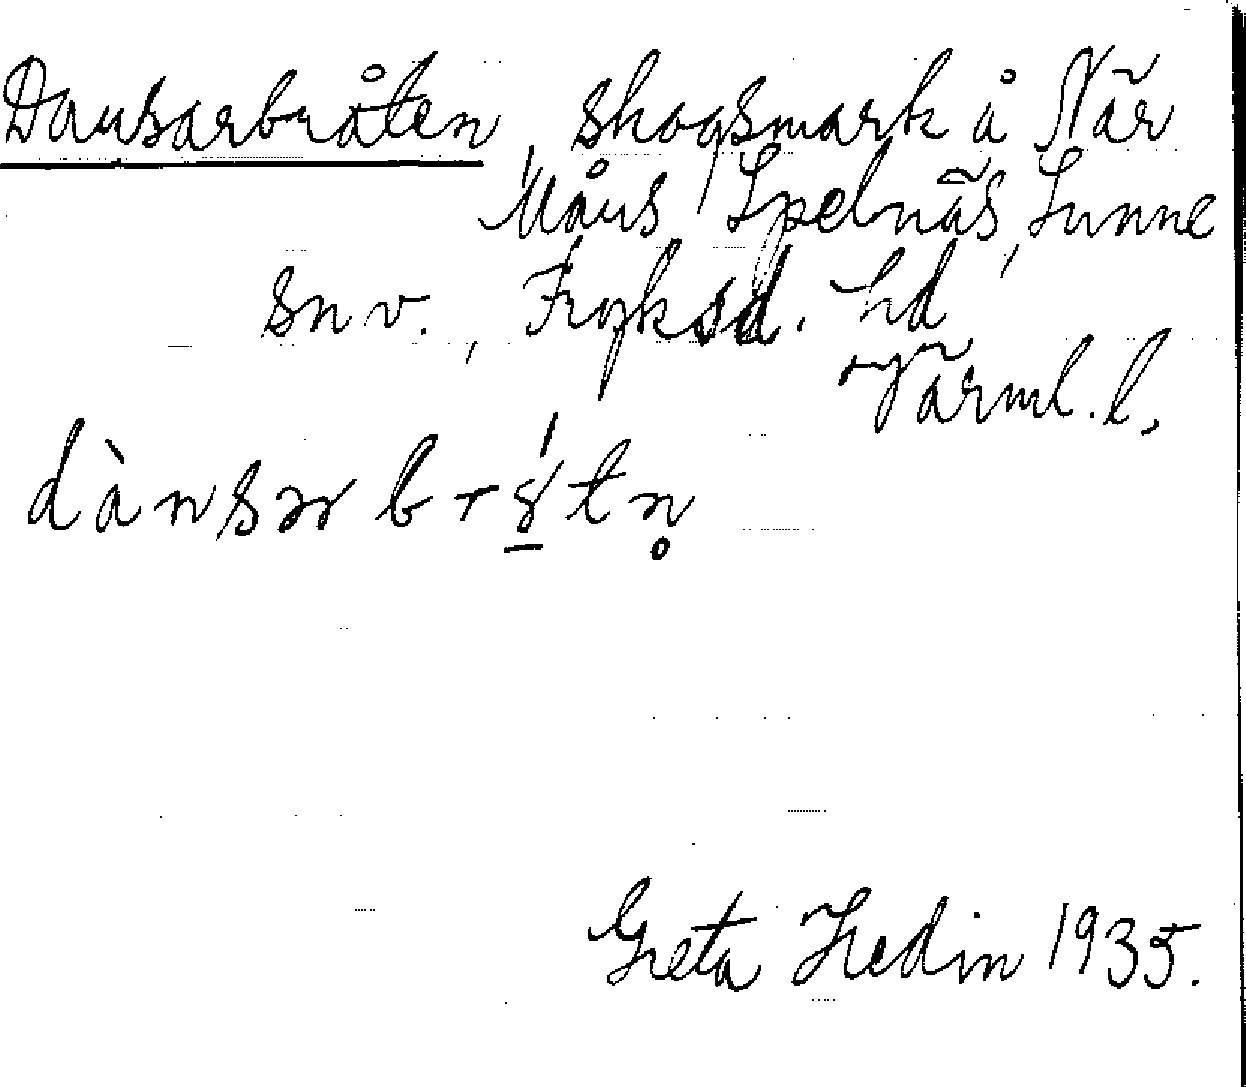 Dansarbråten, skogsmark å När
Måns Spelnäs, Sunne
sn v., Fryksd. hd
Värml. l.
Greta Hedin 1935.